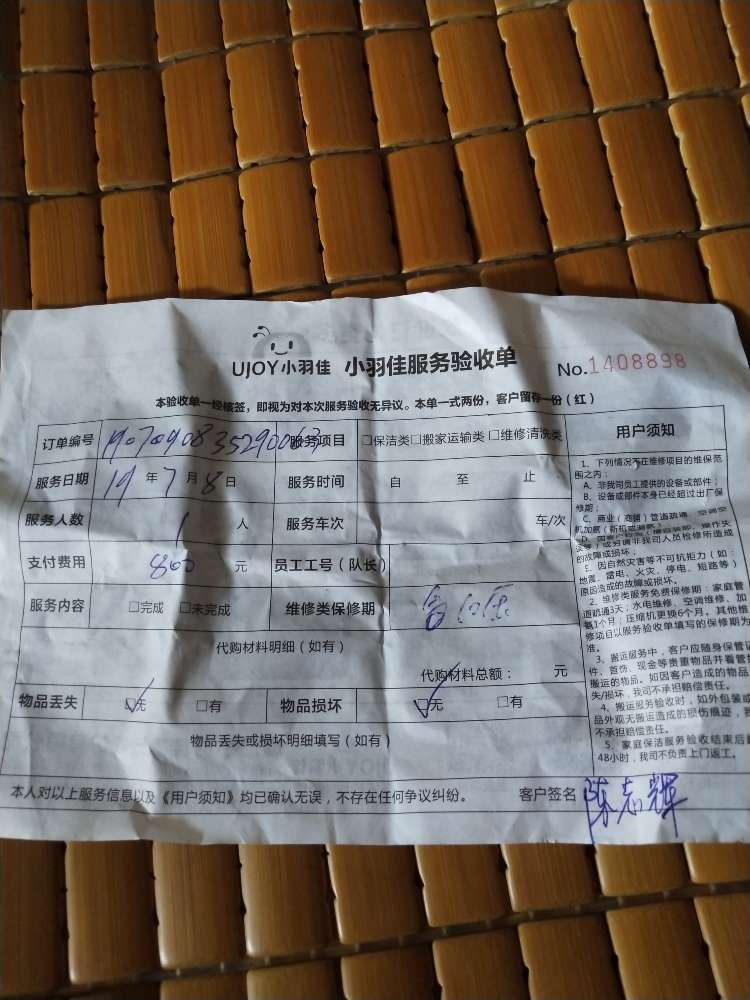 UJOY小羽佳 小羽佳服务验收单 No.1408898
本验收单一经核签，即视为对本次服务验收无异议。本单一式两份，客户留存一份（红）
订单编号 服务项目 □保洁类□搬家运输类□维修清洗类
服务日期 19年7月8日 服务时间 自 至 止
服务人数 1人 服务车次 车/次
支付费用 800元 员工工号（队长）
服务内容 □完成 □未完成 维修类保修期
代购材料明细（如有）
代购材料总额： 元
物品丢失 □无 □有 物品损坏 □无 □有
物品丢失或损坏明细填写（如有）
本人对以上服务信息以及《用户须知》均已确认无误，不存在任何争议纠纷。 客户签名 陈志辉
用户须知
1、下列情况不在维修项目的维保范
围之内：
A、非我司员工提供的设备或部件；
B、设备或部件本身已经超过出厂保
修期；
C、商业（商铺）管道疏通、空调空
机加氨
误等）或另请非我司人员检修所造成
的故障或损坏；
E、因自然灾害等不可抗拒力（如：
地震、雷电、火灾、停电、短路等）
原因造成的故障或损坏。
2、维修类服务免费保修期：家庭管
道疏通3天；水电维修、空调维修、加
氨1个月；压缩机更换6个月。其他维
修项目以服务验收单填写的保修期为
准。
3、搬运服务中，客户应随身保管证
件、首饰、现金等贵重物品并看管
搬运的物品。如因客户造成的物品
失/损坏，我司不承担赔偿责任。
4、搬运服务验收时，如外包装或
品外观无搬运造成的损伤痕迹，
不承担赔偿责任。
5、家庭保洁服务验收结束后
48小时，我司不负责上门返工。